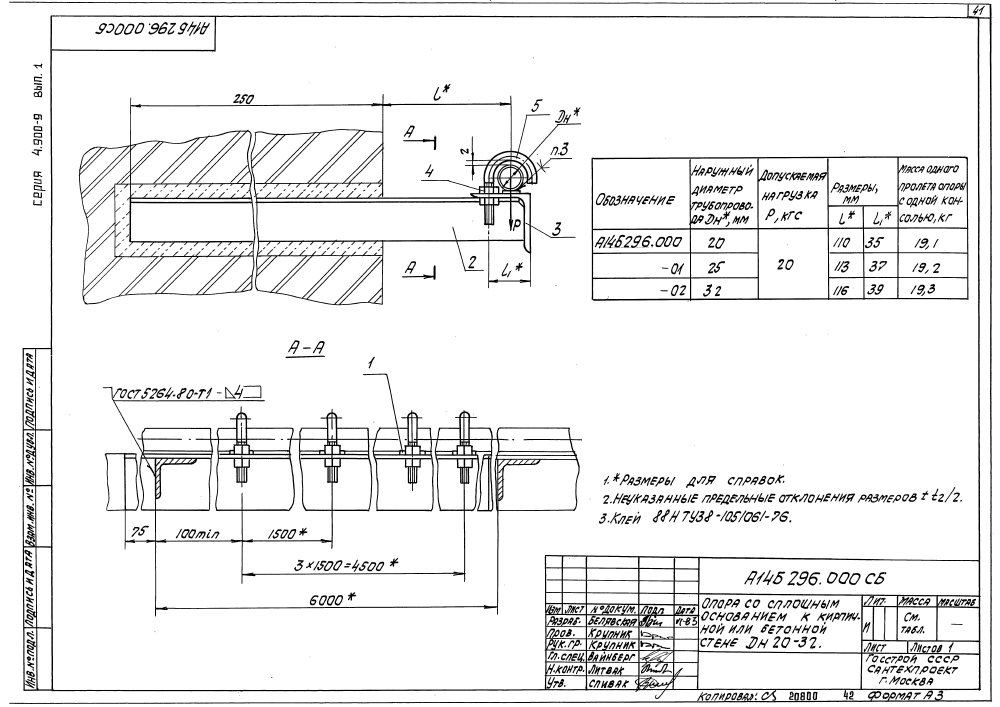 41
А14Б 296.000СБ
Серия 4.900-9 вып. 1
250
L*
А
5
Dн*
п.3
2
4
Р
3
А
2
L₁*
Обозначение
Наружный диаметр трубопровода Dн*, мм
Допускаемая нагрузка Р, кгс
Размеры, мм
L* L₁*
Масса одного пролета опоры с одной консолью, кг
А14Б296.000 20 20 110 35 19,1
-01 25 113 37 19,2
-02 32 116 39 19,3
А-А
1
ГОСТ 5264-80-Т1-◺4
75
100min
1500*
3×1500=4500*
6000*
1.*Размеры для справок.
2.Неуказанные предельные отклонения размеров ± t₂/2.
3.Клей 88Н ТУ38-1051061-76.
Инв.№подл. Подпись и дата Взам.инв.№ Инв.№дубл. Подпись и дата
А14Б 296.000 СБ
Изм Лист №докум. Подп. Дата
Разраб. Белявская VI-83
Пров. Крупник
Рук.гр. Крупник
Гл.спец. Вайнберг
Н.контр. Литвак
Утв. Спивак
Опора со сплошным
основанием к кирпич-
ной или бетонной
стене Dн 20-32.
Лит. Масса Масштаб
И См. табл. —
Лист Листов 1
Госстрой СССР
Сантехпроект
г. Москва
Копировал: 20800 42 Формат А3